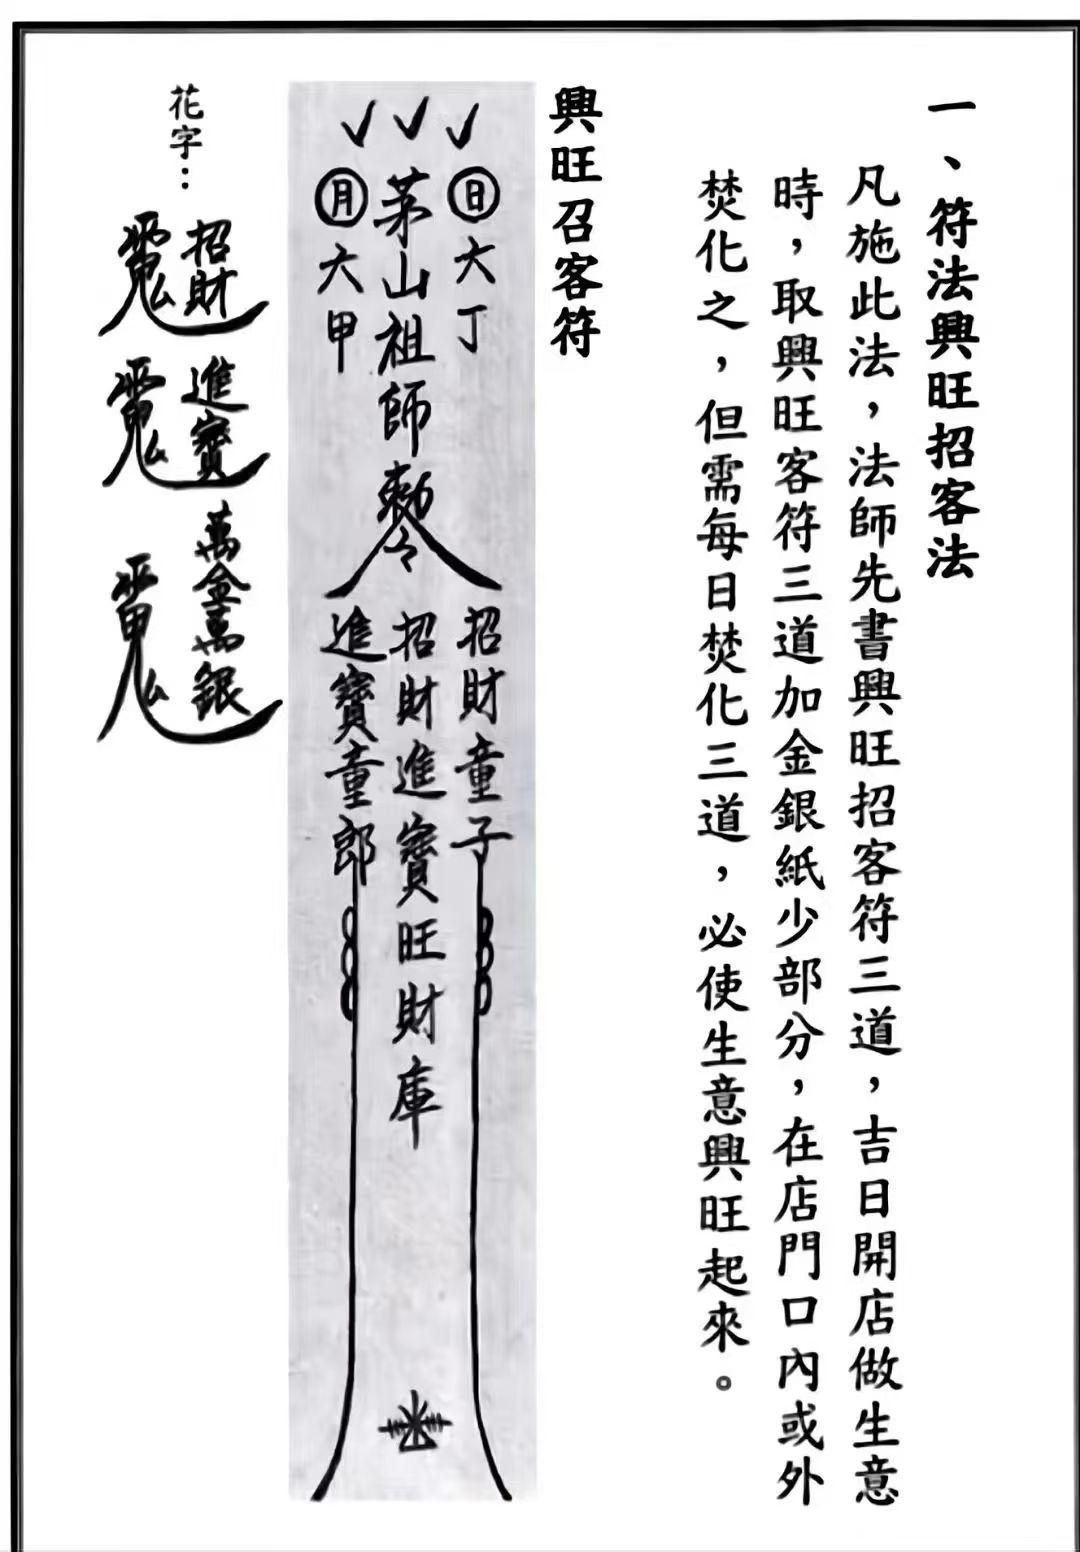 一、符法興旺招客法
凡施此法，法師先書興旺招客符三道，吉日開店做生意
時，取興旺客符三道加金銀紙少部分，在店門口內或外
焚化之，但需每日焚化三道，必使生意興旺起來。
興旺召客符
日六丁
茅山祖師勅令
月六甲
招財童子
招財進寶旺財庫
進寶童郎
花字：
招財
進寶
萬金萬銀